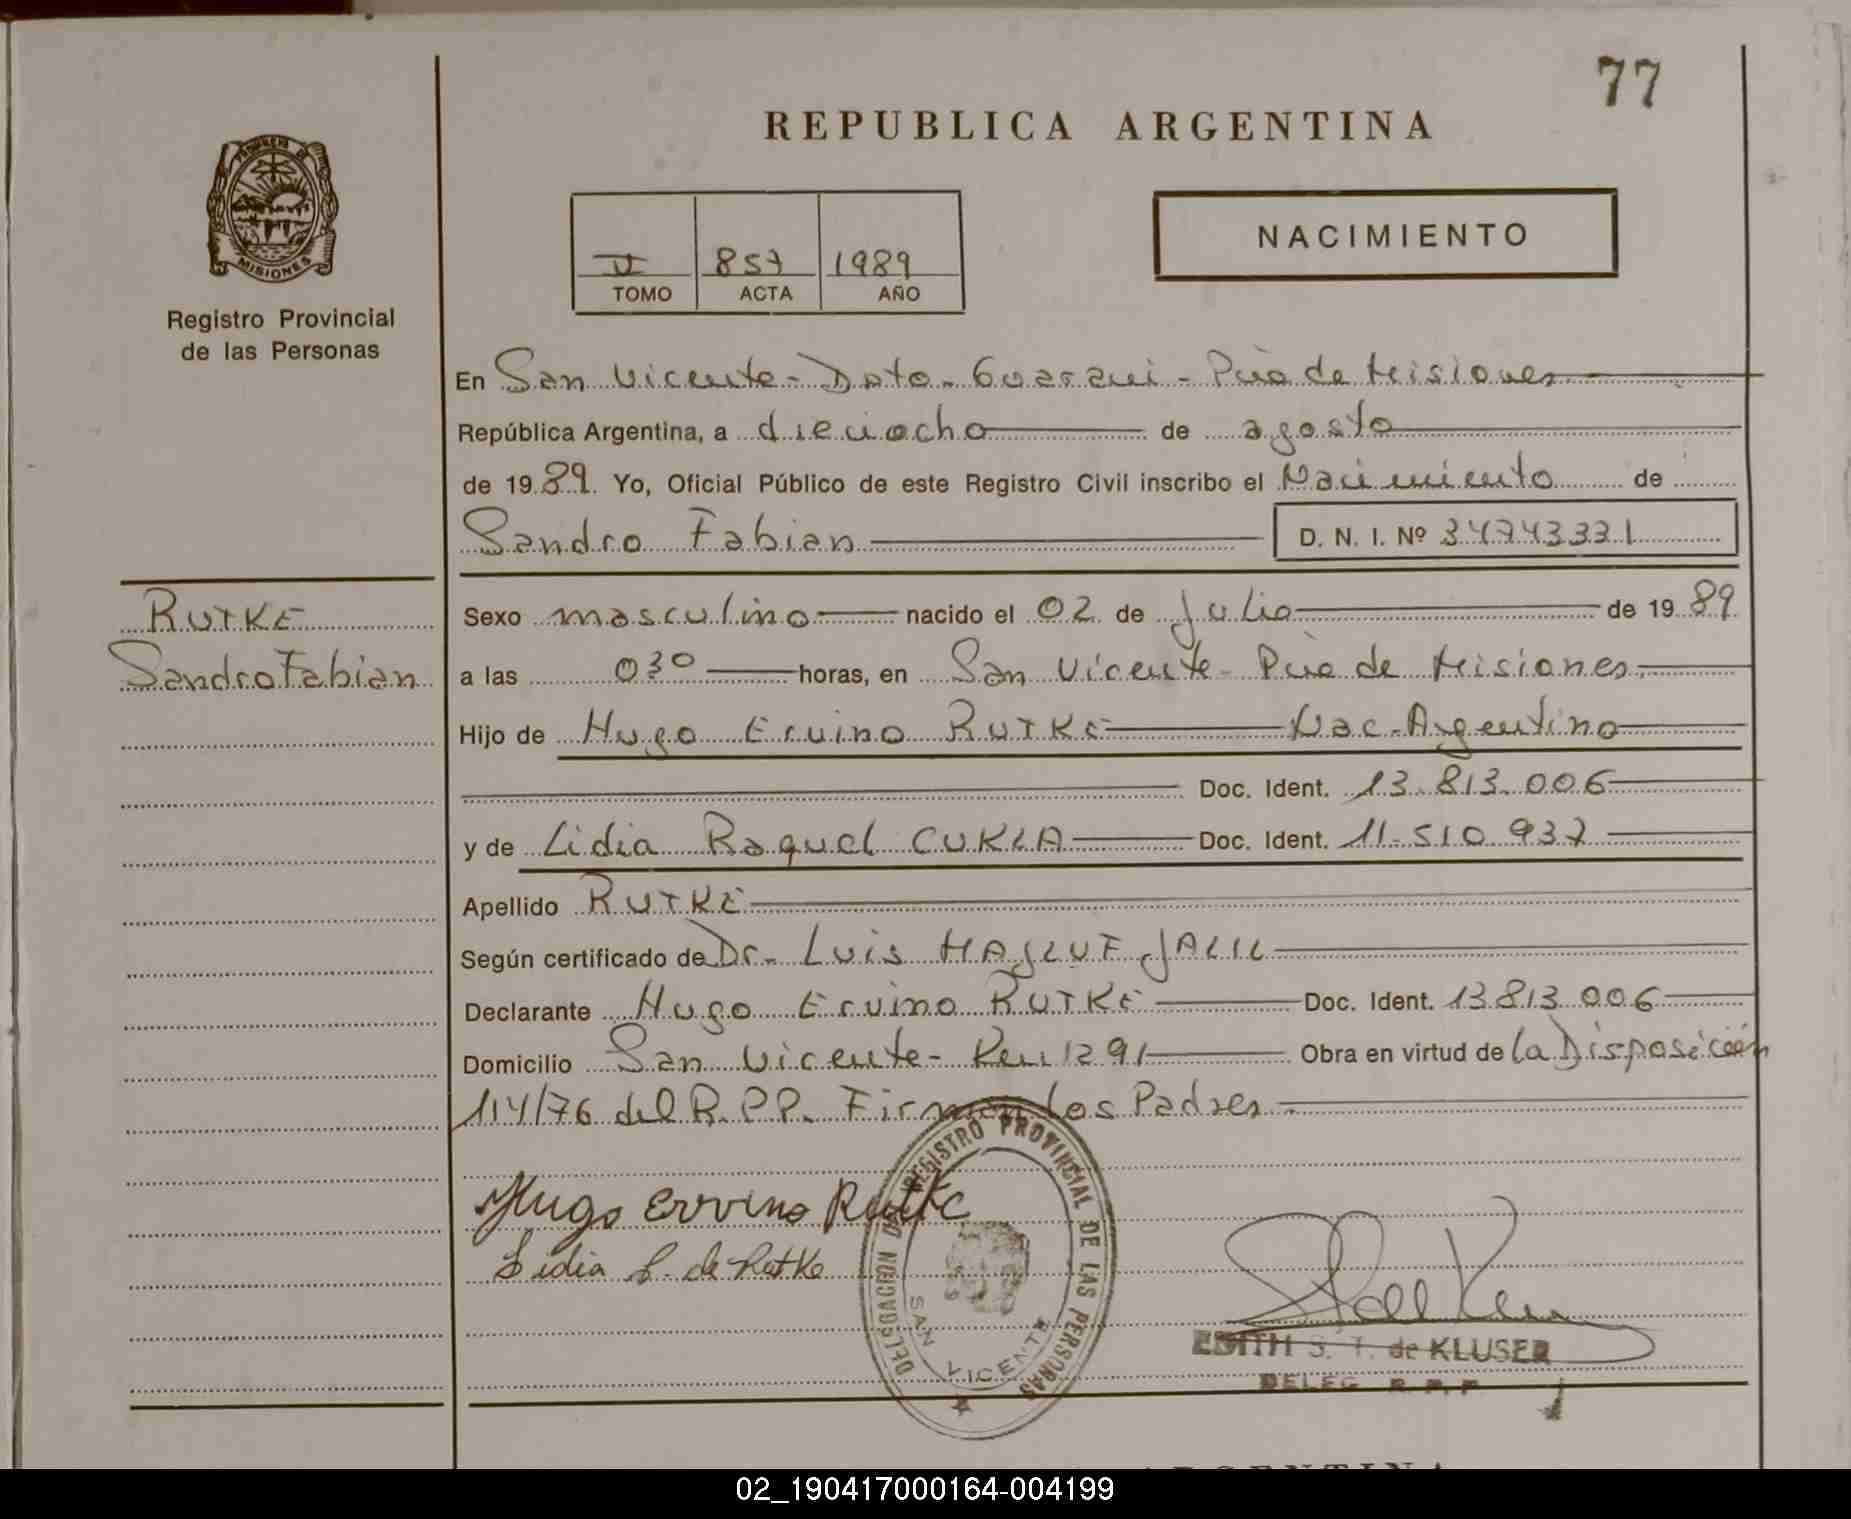 77
REPUBLICA ARGENTINA
PROVINCIA DE
MISIONES
Registro Provincial
de las Personas
II 857 1989
TOMO ACTA AÑO
NACIMIENTO
En San Vicente - Dpto. Guarani - Pcia de Misiones
República Argentina, a dieciocho de agosto
de 1989. Yo, Oficial Público de este Registro Civil inscribo el Nacimiento de
Sandro Fabian D. N. I. Nº 34743331
RUTKE
Sandro Fabian
Sexo masculino nacido el 02 de Julio de 1989
a las 03º horas, en San Vicente - Pcia de Misiones
Hijo de Hugo Ervino RUTKE Nac. Argentino
Doc. Ident. 13.813.006
y de Lidia Raquel CUKLA Doc. Ident. 11.510.937
Apellido RUTKE
Según certificado de Dr. Luis HAJLUF JALIL
Declarante Hugo Ervino RUTKE Doc. Ident. 13.813.006
Domicilio San Vicente - Km 1291 Obra en virtud de la Disposición
114/76 del R.P.P. Firman los Padres.
Hugo Ervino Rutke
Lidia de Rutke
DELEGACION DEL REGISTRO PROVINCIAL DE LAS PERSONAS
SAN VICENTE
EDITH S. T. de KLUSER
DELEG. R. P. P.
ARGENTINA
02_190417000164-004199